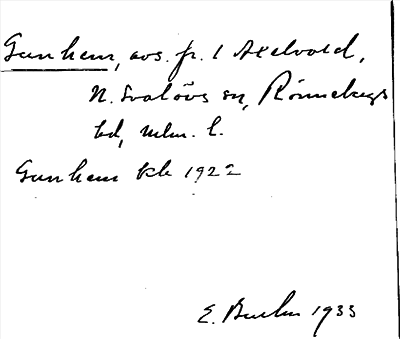 Gunhem, avs. fr. 1 Axelvold,
N. Svalövs sn, Rönnebergs
hd, Mlm. l.
Gunhem kk 1922
E. Buhn 1933